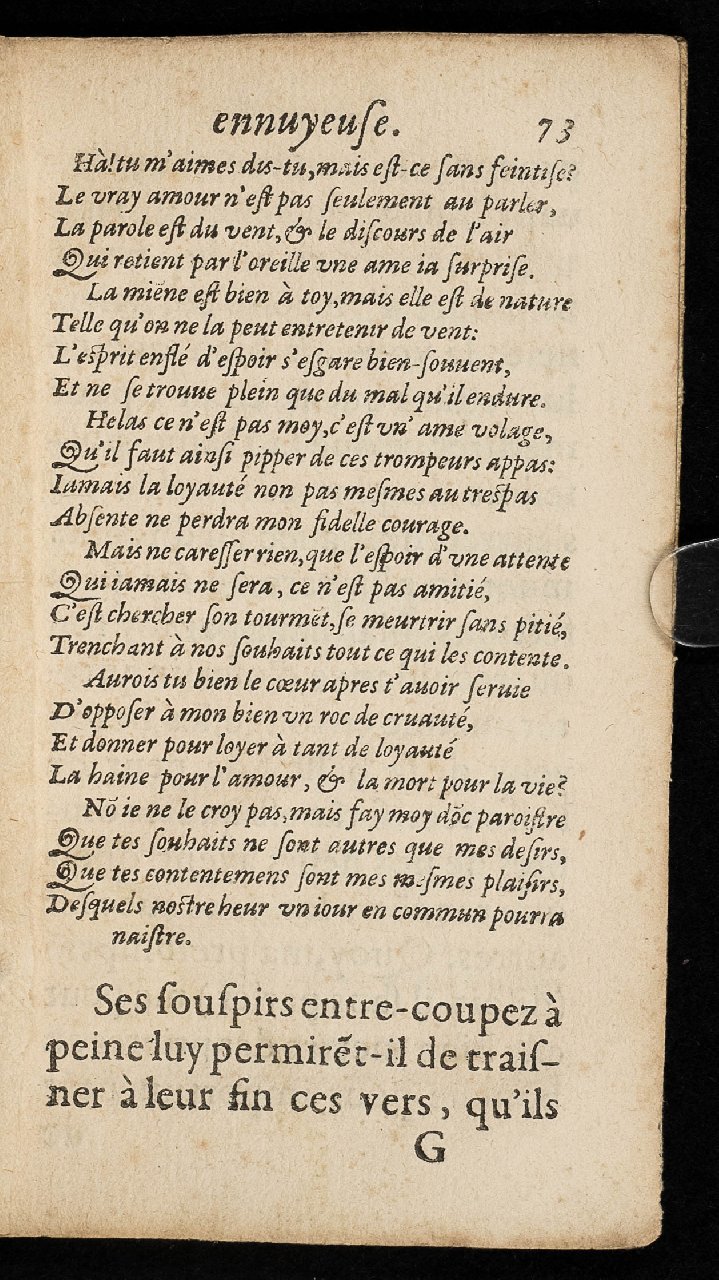 ennuyeuſe. 73
Hà! tu m'aimes dis-tu, mais eſt-ce ſans feintiſe?
Le vray amour n'eſt pas ſeulement au parler,
La parole eſt du vent, & le diſcours de l'air
Qui retient par l'oreille vne ame ia ſurpriſe.
La miẽne eſt bien à toy, mais elle eſt de nature
Telle qu'on ne la peut entretenir de vent:
L'eſprit enflé d'eſpoir s'eſgare bien-ſouuent,
Et ne ſe trouue plein que du mal qu'il endure.
Helas ce n'eſt pas moy, c'eſt vn' ame volage,
Qu'il faut ainſi pipper de ces trompeurs appas:
Iamais la loyauté non pas meſmes au treſpas
Abſente ne perdra mon fidelle courage.
Mais ne careſſer rien, que l'eſpoir d'vne attente
Qui iamais ne ſera, ce n'eſt pas amitié,
C'eſt chercher ſon tourmẽt, ſe meurtrir ſans pitié,
Trenchant à nos ſouhaits tout ce qui les contente.
Aurois tu bien le cœur apres t'auoir ſeruie
D'oppoſer à mon bien vn roc de cruauté,
Et donner pour loyer à tant de loyauté
La haine pour l'amour, & la mort pour la vie?
Nõ ie ne le croy pas, mais fay moy dõc paroiſtre
Que tes ſouhaits ne ſont autres que mes deſirs,
Que tes contentemens ſont mes meſmes plaiſirs,
Deſquels noſtre heur vn iour en commun pourra
naiſtre.
Ses ſouſpirs entre-coupez à
peine luy permirẽt-il de traiſ-
ner à leur fin ces vers, qu'ils
G